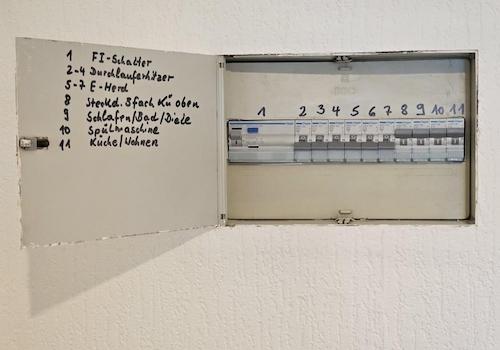 1 FI-Schalter
2-4 Durchlauferhitzer
5-7 E-Herd
8 Steckd. 3fach Kü oben
9 Schlafen/Bad/Diele
10 Spülmaschine
11 Küche/Wohnen
1 2 3 4 5 6 7 8 9 10 11